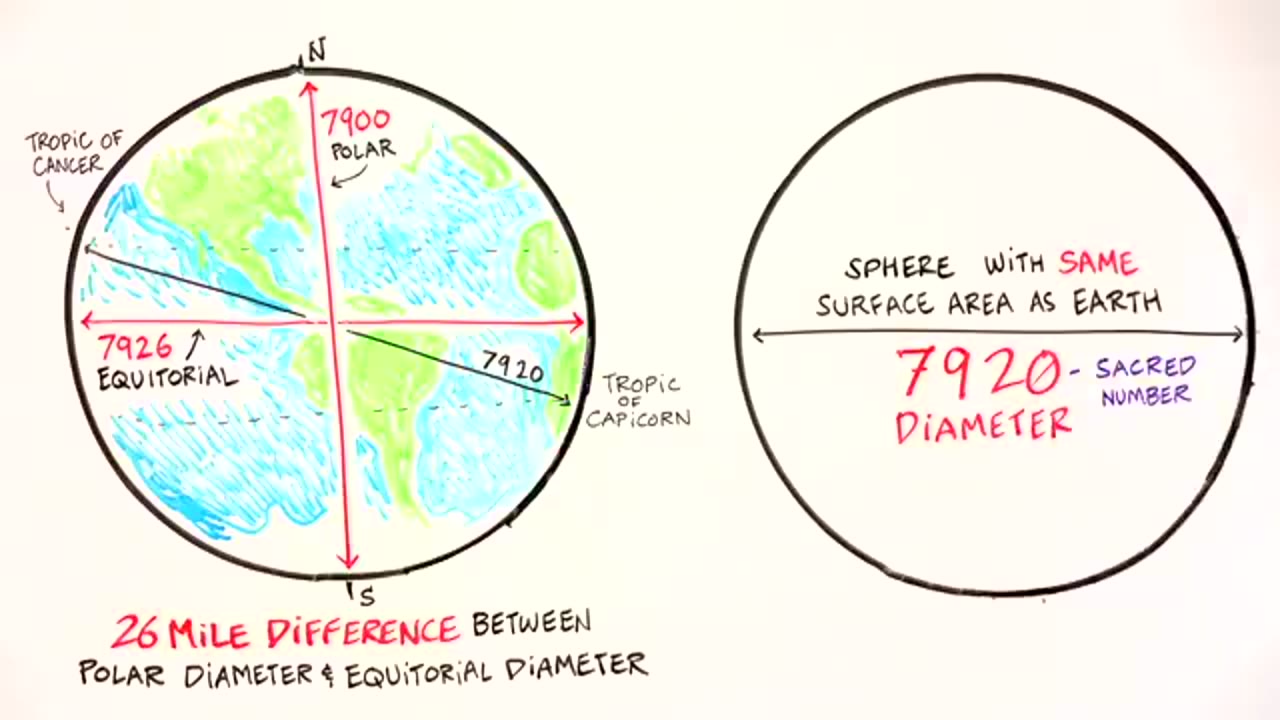 N
TROPIC OF
CANCER
7900
POLAR
7926
EQUITORIAL
7920
TROPIC
OF
CAPICORN
S
26 MILE DIFFERENCE BETWEEN
POLAR DIAMETER & EQUITORIAL DIAMETER
SPHERE WITH SAME
SURFACE AREA AS EARTH
7920 - SACRED
NUMBER
DIAMETER